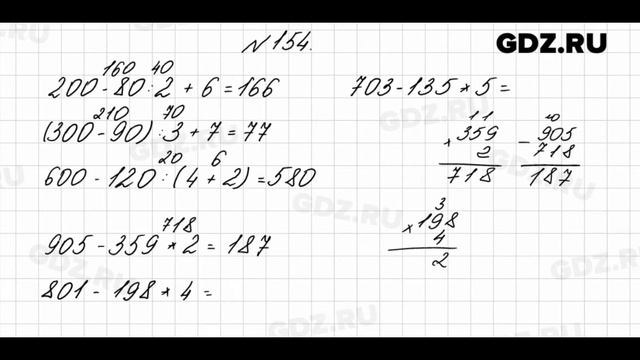 №154.
GDZ.RU
160 40
200-80:2+6=166
210 70
(300-90):3+7=77
20 6
600-120:(4+2)=580
718
905-359*2=187
801-198*4=
703-135*5=
11
359
× 2
718
10
905
- 718
187
3
198
× 4
2
GDZ.RU
GDZ.RU
GDZ.RU
GDZ.RU